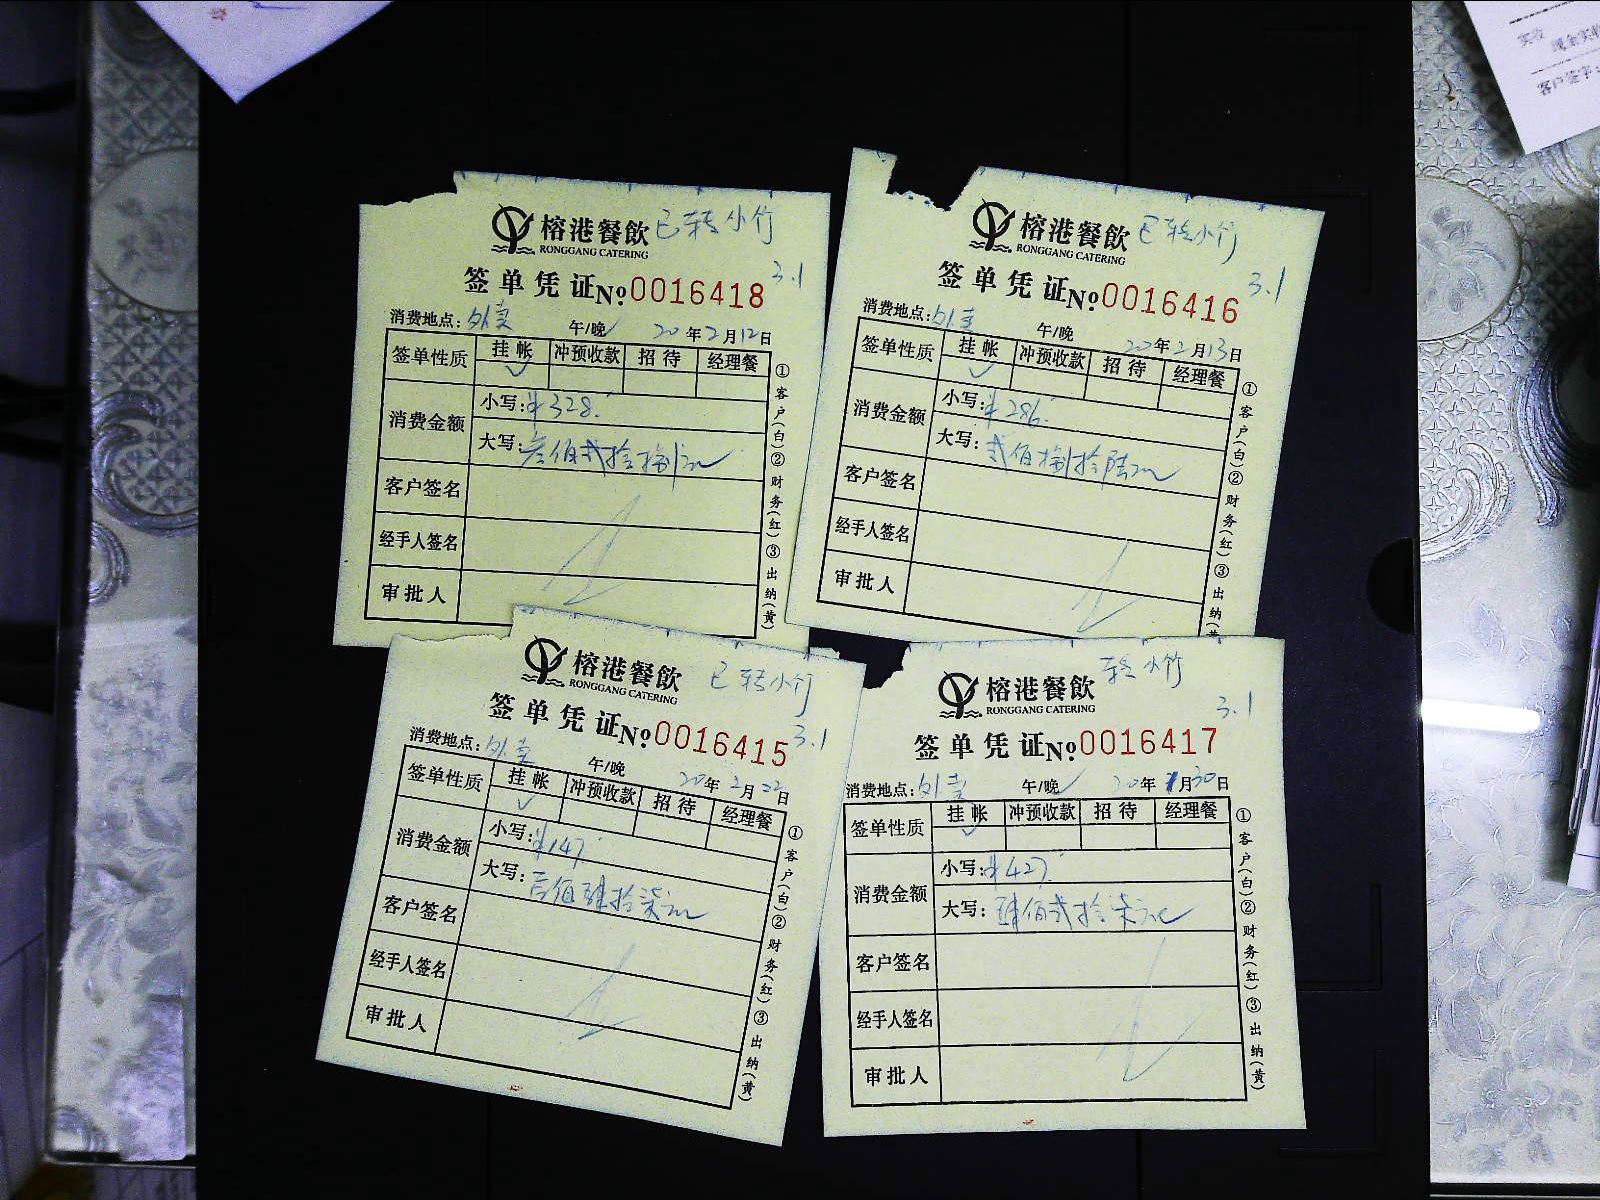 榕港餐飲 已转小竹
RONGGANG CATERING
签单凭证 №0016418 3.1
消费地点:外卖 午/晚 20年2月12日
签单性质 挂帐 冲预收款 招待 经理餐
✓
消费金额 小写:¥328.
大写:叁佰贰拾捌元
客户签名
经手人签名
审批人
①客户(白)②财务(红)③出纳(黄)
榕港餐飲 已转小竹
RONGGANG CATERING
签单凭证 №0016416 3.1
消费地点:外卖 午/晚 2020年2月13日
签单性质 挂帐 冲预收款 招待 经理餐
✓
消费金额 小写:¥286.
大写:贰佰捌拾陆元
客户签名
经手人签名
审批人
①客户(白)②财务(红)③出纳(黄
榕港餐飲 已转小竹
RONGGANG CATERING
签单凭证 №0016415 3.1
消费地点:外卖 午/晚 20年2月22日
签单性质 挂帐 冲预收款 招待 经理餐
✓
消费金额 小写:¥147.
大写:壹佰肆拾柒元
客户签名
经手人签名
审批人
①客户(白)②财务(红)③出纳(黄)
榕港餐飲 转小竹
RONGGANG CATERING
签单凭证 №0016417 3.1
消费地点:外卖 午/晚 20年1月30日
签单性质 挂帐 冲预收款 招待 经理餐
✓
消费金额 小写:¥427.
大写:肆佰贰拾柒元
客户签名
经手人签名
审批人
①客户(白)②财务(红)③出纳(黄)
客户签字: